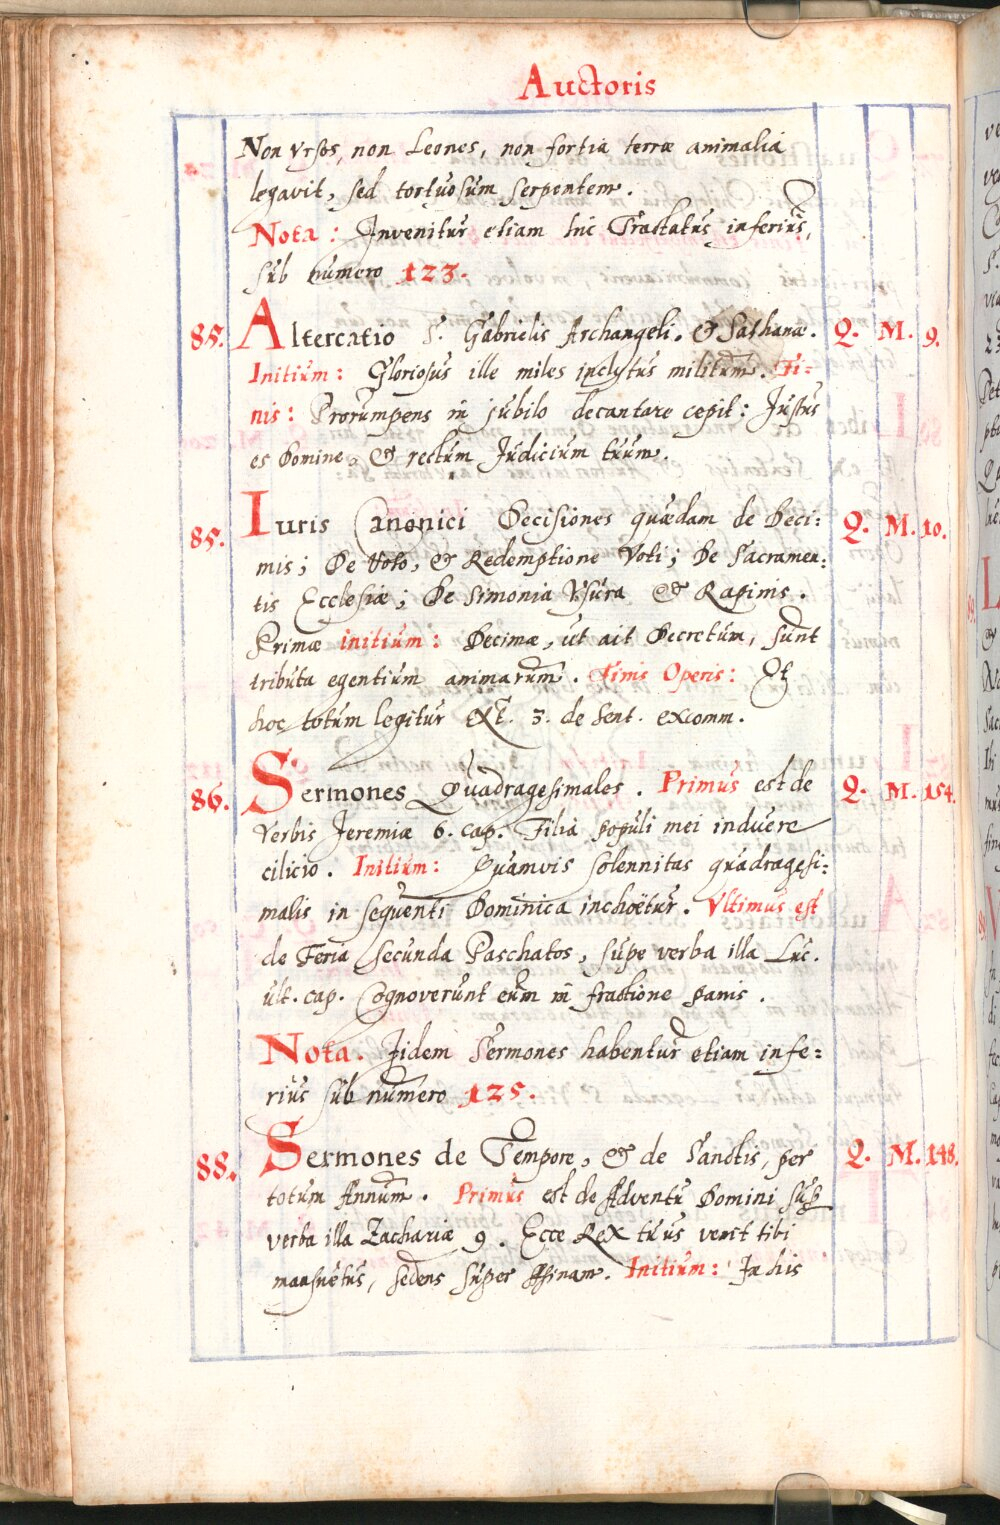 Auctoris
Non Vrsos, non Leones, non fortia terræ animalia
legavit, sed tortuosum serpentem.
Nota: Invenitur etiam hic Tractatus inferius,
sub numero 123.
85. Altercatio S. Gabrielis Archangeli. & Sathanæ. Q. M. 9.
Initium: Gloriosus ille miles inclytus militum. Fi-
nis: Prorumpens in jubilo decantare cepit: Justus
es Domine, & rectum Judicium tuum.
85. Iuris Canonici Decisiones quædam de Deci: Q. M. 10.
mis; De Voto, & Redemptione Voti; De Sacramen:
tis Ecclesiæ; De Simonia Vsura & Rapinis.
Primæ initium: Decimæ, ut ait Decretum, sunt
tributa egentium animarum. Finis Operis: Et
hoc totum legitur Ext. 3. de Sent. excomm.
86. Sermones Quadragesimales. Primus est de Q. M. 154.
Verbis Jeremiæ 6. cap. Filia populi mei induere
cilicio. Initium: Quamvis solennitas quadragesi:
malis in sequenti Dominica inchoëtur. Vltimus est
de Feria secunda Paschatos, supe verba illa Luc.
ult. cap. Cognoverunt eum in fractione panis.
Nota. Iidem Sermones habentur etiam infe:
rius sub numero 125.
88. Sermones de Tempore, & de Sanctis, per Q. M. 148.
totum Annum. Primus est de Adventu Domini sup
verba illa Zachariæ 9. Ecce Rex tuus venit tibi
mansuetus, sedens super Asinam. Initium: In his